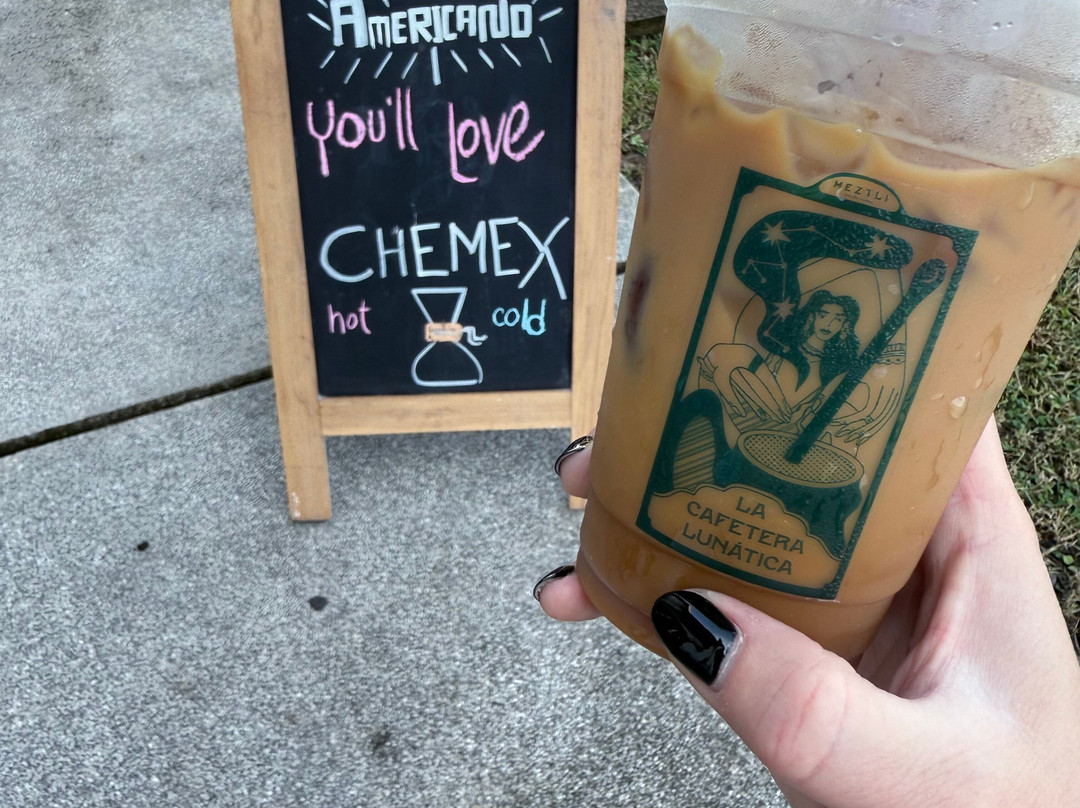 AMERICANO
you'll love
CHEMEX
hot cold
MEZTLI
LA
CAFETERA
LUNÁTICA